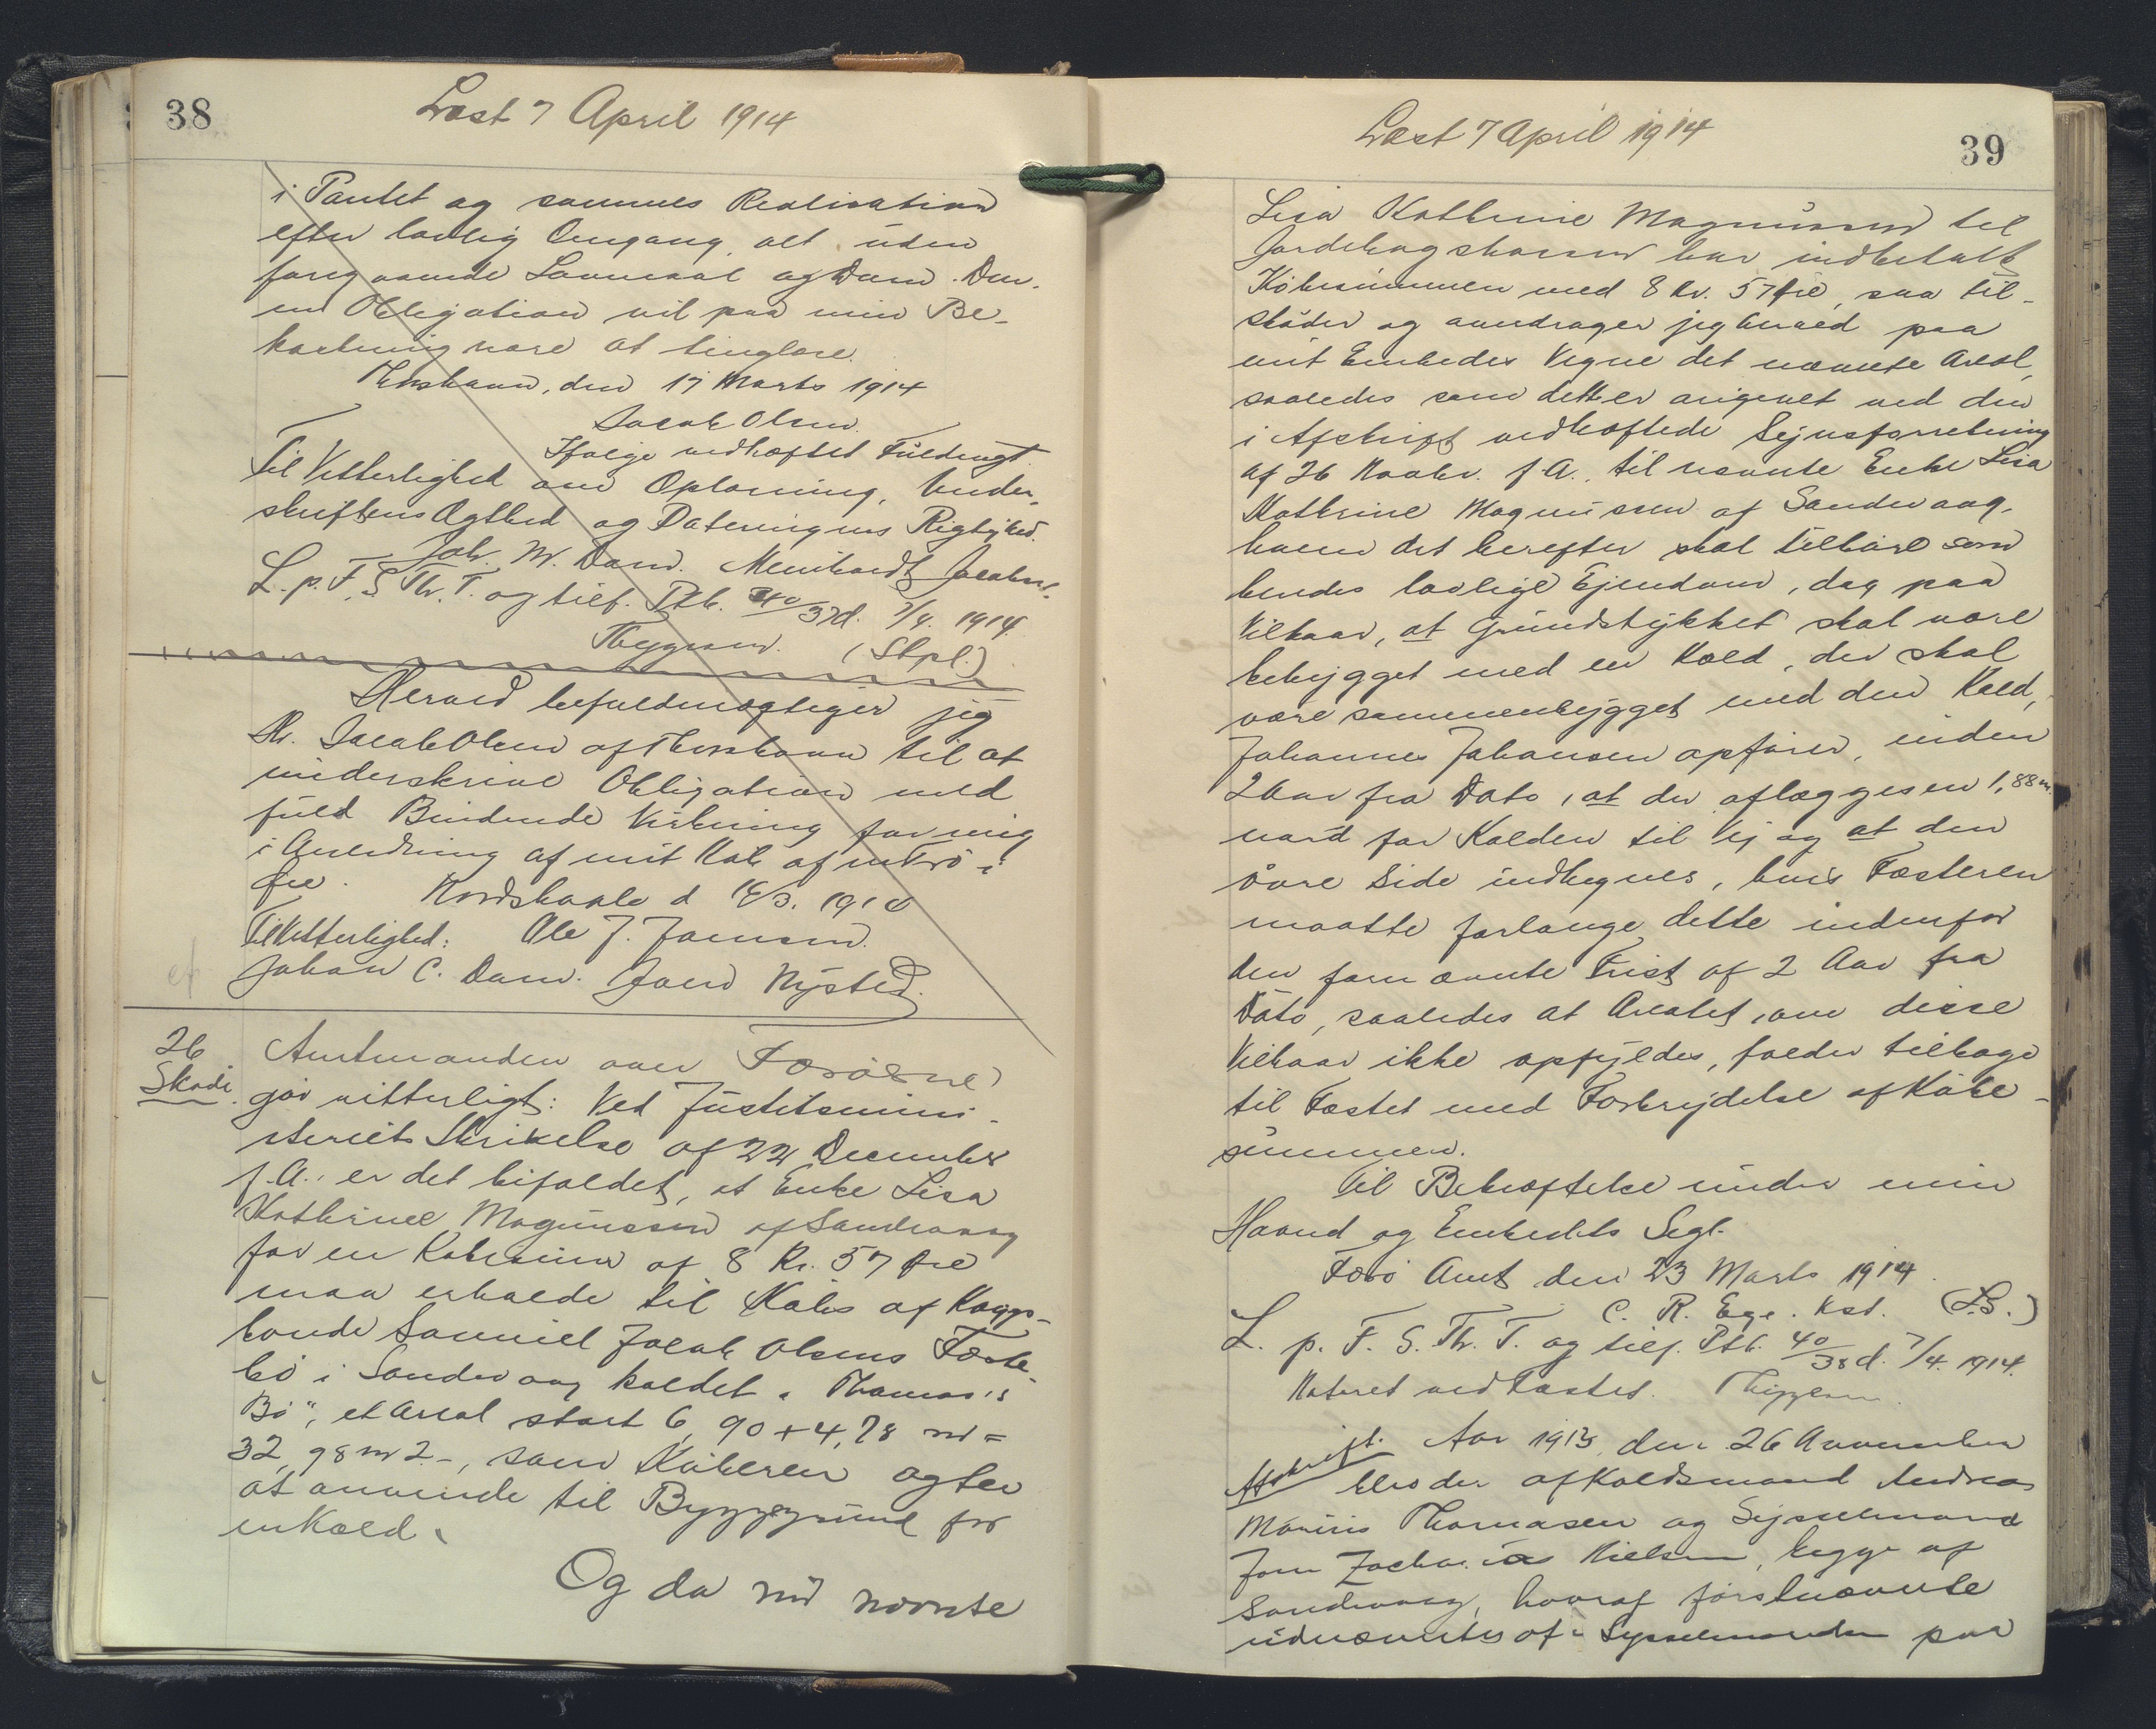 38
Læst 7 April 1914
i Pantet og sammes Realisation
efter lovlig Omgang, alt uden
foregaaende Lovmaal og Dom. Den-
ne Obligation vil paa min Be-
kostning være at tinglæse.
Thorshavn, den 17 Marts 1914
Jacob Olsen.
Ifølge vedhæftet Fuldmagt
Til Vitterlighed om Oplæsning, Under-
skriftens Ægthed og Dateringens Rigtighed.
Joh. M. Dam. Meinhardt Jacobsen.
L. p. F. S. Th. T. og tilf. Ptb. 40/37d. 7/4. 1914.
(Stpl.)
Herved befuldmægtiger jeg
Hr. Jacob Olsen af Thorshavn til at
underskrive Obligation med
fuld Bindende Virkning for mig
i Anledning af mit Køb af
Nordskaale d 16/3. 1910
Til Vitterlighed: Ole J. Joensen.
Johan C. Dam. Joen Nysted.
26
Skøde.
Amtmanden over Færøerne
gør vitterligt: Ved Justitsmini-
steriets Skrivelse af 22 December
f. A. er det bifaldet, at Enke Lisa
Kathrine Magnussen af Sandevaag
for en Købesum af 8 Kr. 57 Øre
maa erholde til Købs af Kongs-
bonde Samuel Jacob Olsens Fæste-
bø i Sandevaag kaldet "Thomas's
Bø", et Areal stort 6,90 + 4,78 m =
32,98 m2 -, som Køberen agter
at anvende til Byggegrund for
en Kæld.
Og da nu nævnte
Læst 7 April 1914
39
Lisa Kathrine Magnussen til
Jordebogskassen har indbetalt
Købesummen med 8 Kr. 57 Øre, saa til-
skøder og overdrager jeg herved paa
mit Embedes Vegne det nævnte Areal,
saaledes som dette er angivet ved den
i Afskrift vedhæftede Synsforretning
af 26 Novbr. f. A. til nævnte Enke Lisa
Kathrine Magnussen af Sandevaag,
hvem det herefter skal tilhøre som
hendes lovlige Ejendom, dog paa
Vilkaar, at Grundstykket skal være
bebygget med en Kæld, der skal
være sammenbygget med den Kæld,
Johannes Johansen opfører, inden
2 Aar fra Dato, at der aflægges en 1,88 m.
nord for Kælden til Vej og at den
øvre Side indhegnes, hvis Fæsteren
maatte forlange dette indenfor
den fornævnte Frist af 2 Aar fra
Dato, saaledes at Arealet, om disse
Vilkaar ikke opfyldes, falder tilbage
til Fæstet med Forbrydelse af Købe-
summen.
Til Bekræftelse under min
Haand og Embedets Segl.
Færø Amt den 23 Marts 1914.
C. R. Ege. kst. (L.S.)
L. p. F. S. Th. T. og tilf. Ptb. 40/38d. 7/4. 1914.
Noteret ved Fæstet.
Afskrift. Aar 1913, den 26 November
blev der af Koldsmand Andreas
Marius Thomasen og Sysselmand
Joen Zacharias Nielsen, begge af
Sandevaag, hvoraf førstnævnte
udnævntes af Sysselmanden paa